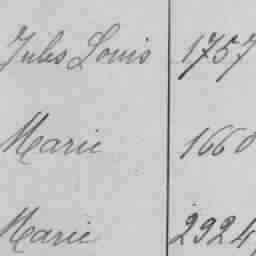 Jules Louis 1757
Marie 1660
Marie 2924